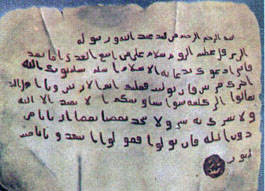 بسم الله الرحمن الرحيم من محمد عبد الله ورسوله
الى هرقل عظيم الروم سلام على من اتبع الهدى اما بعد
فانى ادعوك بدعاية الاسلام اسلم تسلم يوتك الله
اجرك مرتين فان توليت فعليك اثم الاريسين ويا اهل
تعالوا الى كلمة سوا بيننا وبينكم الا نعبد الا الله
ولا نشرك به شيا ولا يتخذ بعضنا بعضا اربابا من
دون الله فان تولوا فقولوا اشهدوا بانا مسلم
ون